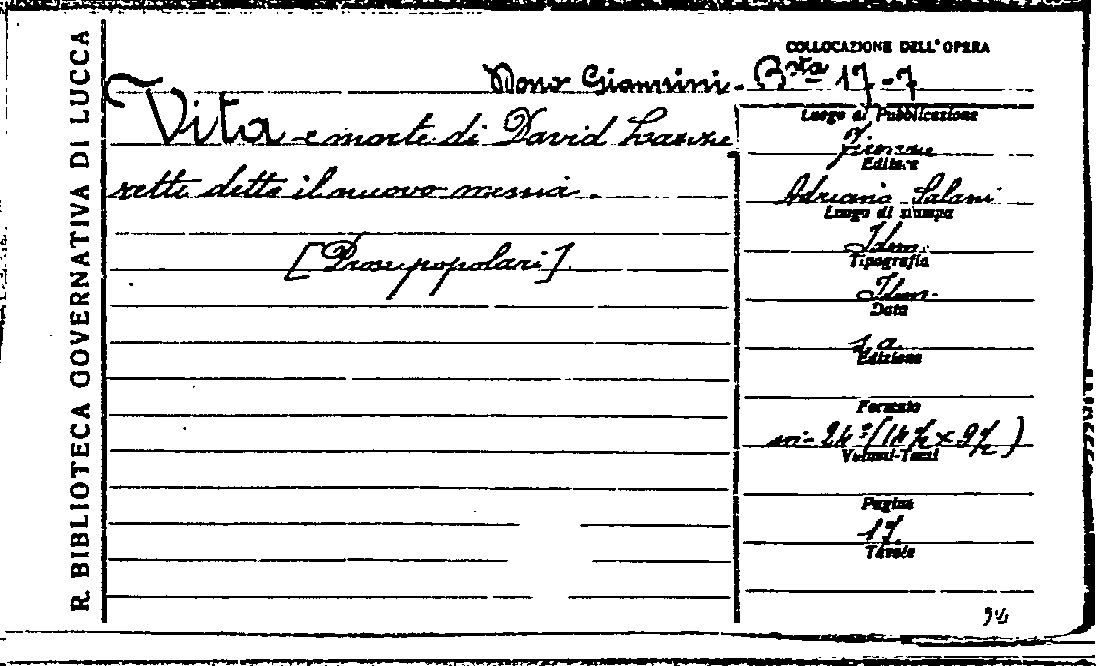 R. BIBLIOTECA GOVERNATIVA DI LUCCA
COLLOCAZIONE DELL'OPERA
Dono Giannini - Bsta 17-7
Vita e morte di David Lazze
retti detto il nuovo messia.
[Prose popolari]
Luogo di Pubblicazione
Firenze
Editore
Adriano Salani
Luogo di stampa
Idem.
Tipografia
Idem.
Data
s. a.
Edizione
Formato
in-24°(14 ½ x 9 ½)
Volumi-Tomi
Pagine
17.
Tavole